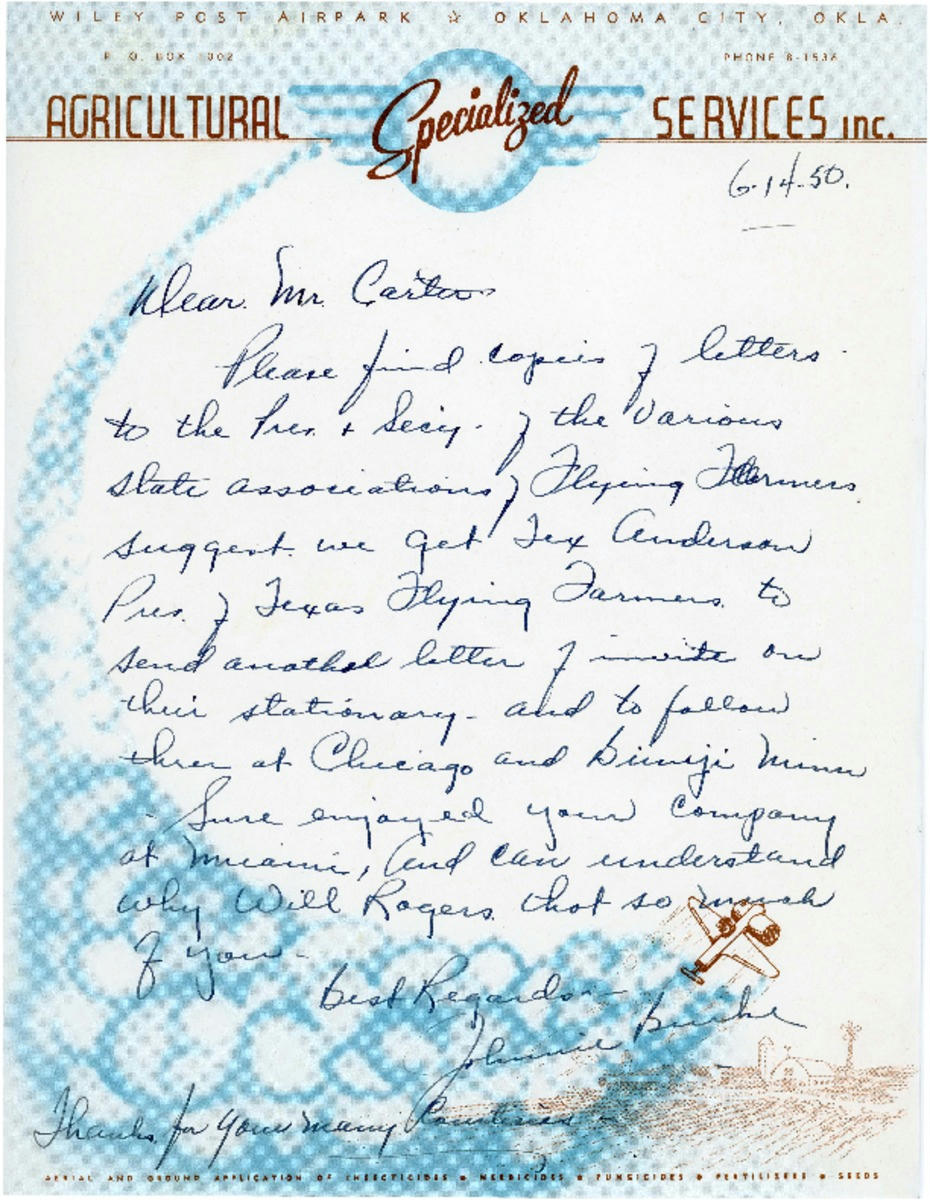 WILEY POST AIRPARK ☆ OKLAHOMA CITY, OKLA.
P. O. BOX 1002 PHONE 8-1536
AGRICULTURAL Specialized SERVICES inc.
6-14-50.
Dear Mr. Carter
Please find copies of letters
to the Pres. + Secy. of the various
state associations of Flying Farmers
suggest we get Tex Anderson
Pres. of Texas Flying Farmers to
send another letter of invite on
their stationary - and to follow
thru at Chicago and Bimiji Minn
- Sure enjoyed your company
at Miami, and can understand
why Will Rogers thot so much
of you -
Best Regards -
Johnnie Burke
Thanks for your many Courtesies -
AERIAL AND GROUND APPLICATION OF INSECTICIDES ● HERBICIDES ● FUNGICIDES ● FERTILIZERS ● SEEDS